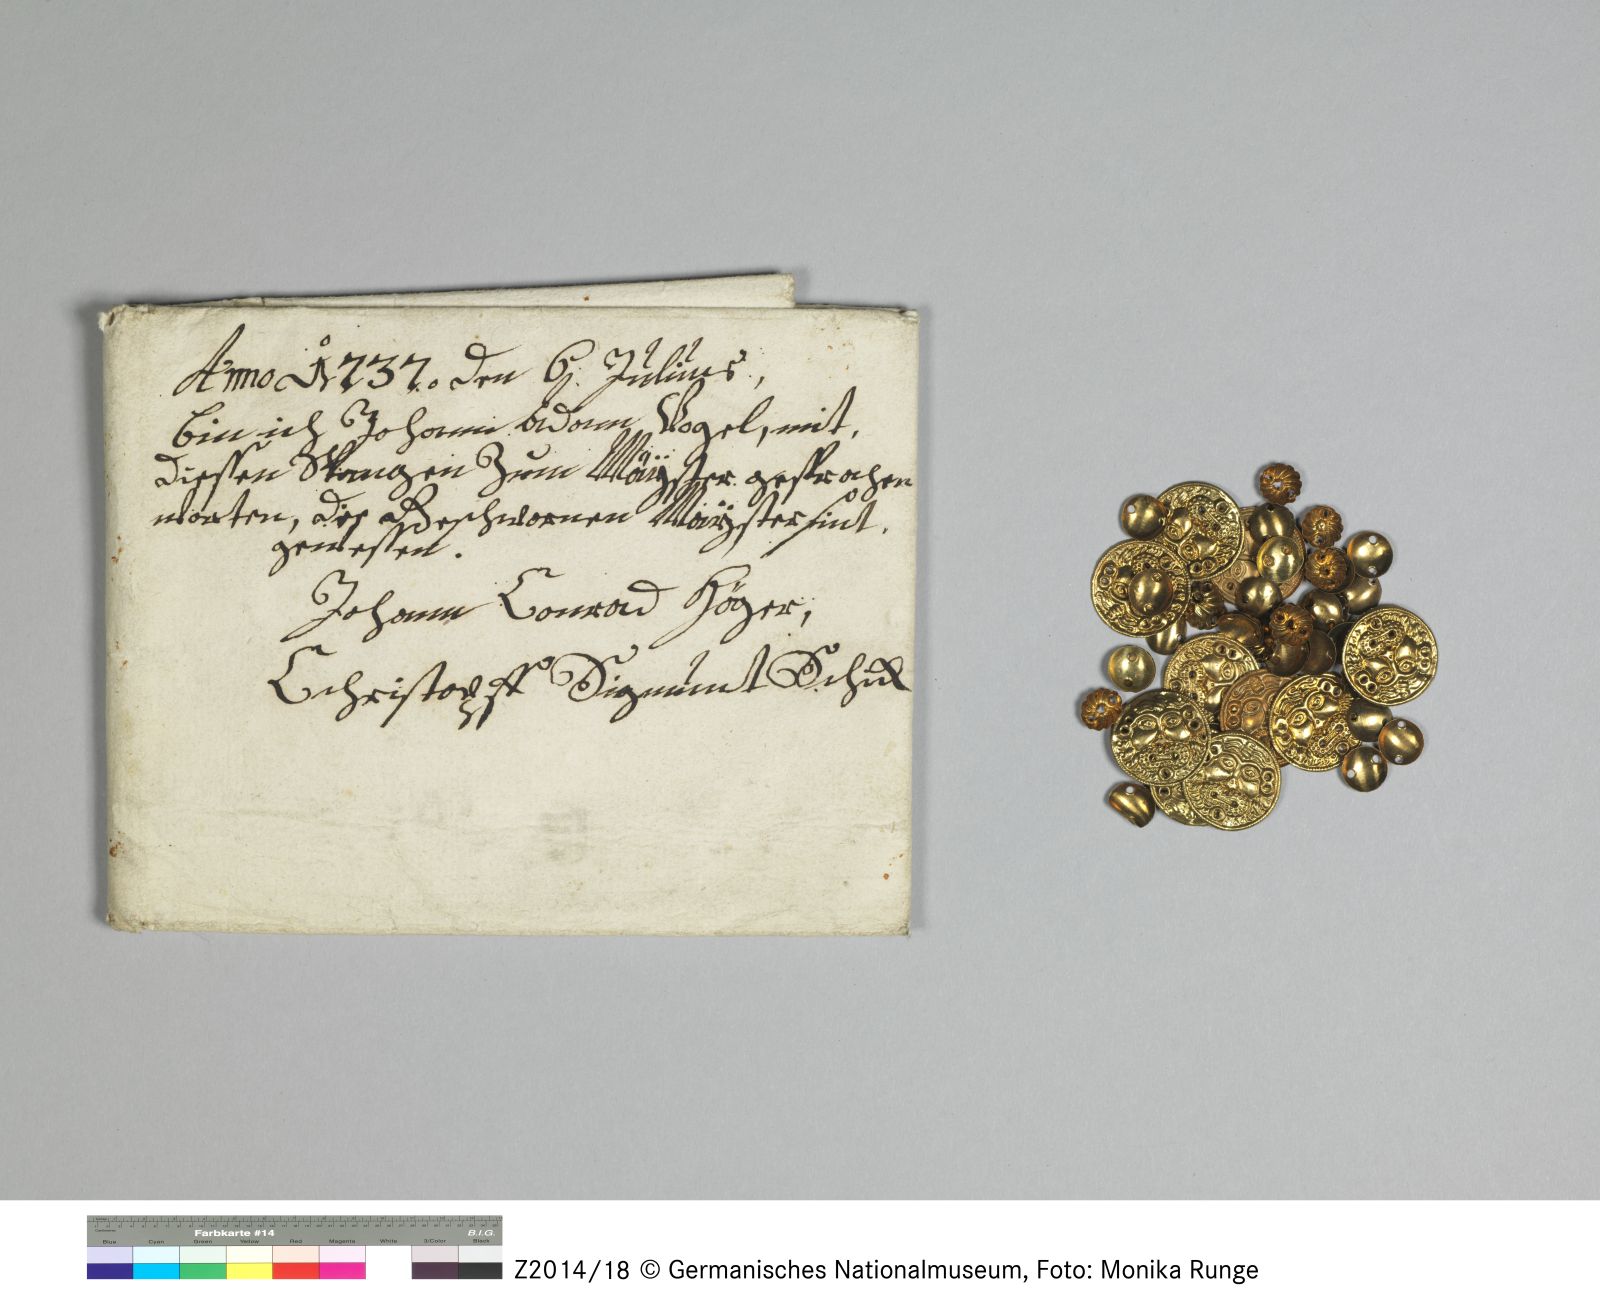 Anno 1737. den 6. Julius,
bin ich Johann adam Vogel, mit,
diessen Spangen Zum Mäyster gesprochen
worten, die Geschwornen Mäyster sint,
gewessen.
Johann Conrad Höger,
Cchristopff Sigmunt Schuk
Farbkarte #14
B.I.G.
Blue Cyan Green Yellow Red Magenta White 3/Color Black
Z2014/18 © Germanisches Nationalmuseum, Foto: Monika Runge